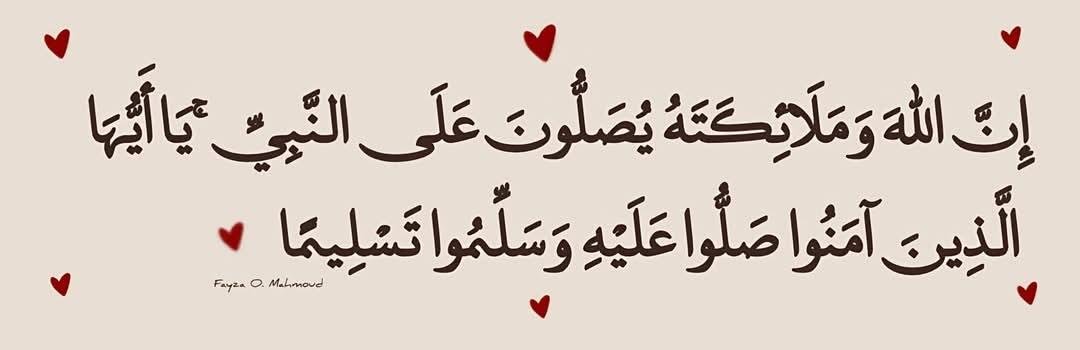 إِنَّ اللهَ وَمَلَائِكَتَهُ يُصَلُّونَ عَلَى النَّبِيِّ ۚ يَا أَيُّهَا
الَّذِينَ آمَنُوا صَلُّوا عَلَيْهِ وَسَلِّمُوا تَسْلِيمًا
Fayza O. Mahmoud